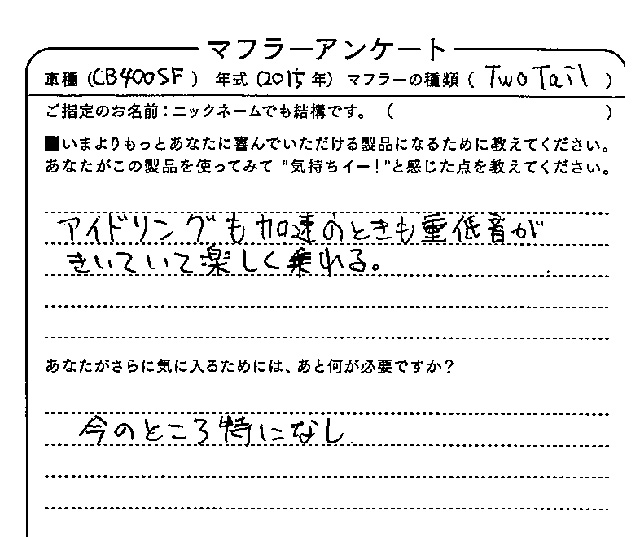 マフラーアンケート
車種 (CB400SF) 年式 (2015年) マフラーの種類 (Two Tail)
ご指定のお名前：ニックネームでも結構です。 ( )
■いまよりもっとあなたに喜んでいただける製品になるために教えてください。
あなたがこの製品を使ってみて "気持ちイー！"と感じた点を教えてください。
アイドリングも加速のときも重低音が
きいていて楽しく乗れる。
あなたがさらに気に入るためには、あと何が必要ですか？
今のところ特になし